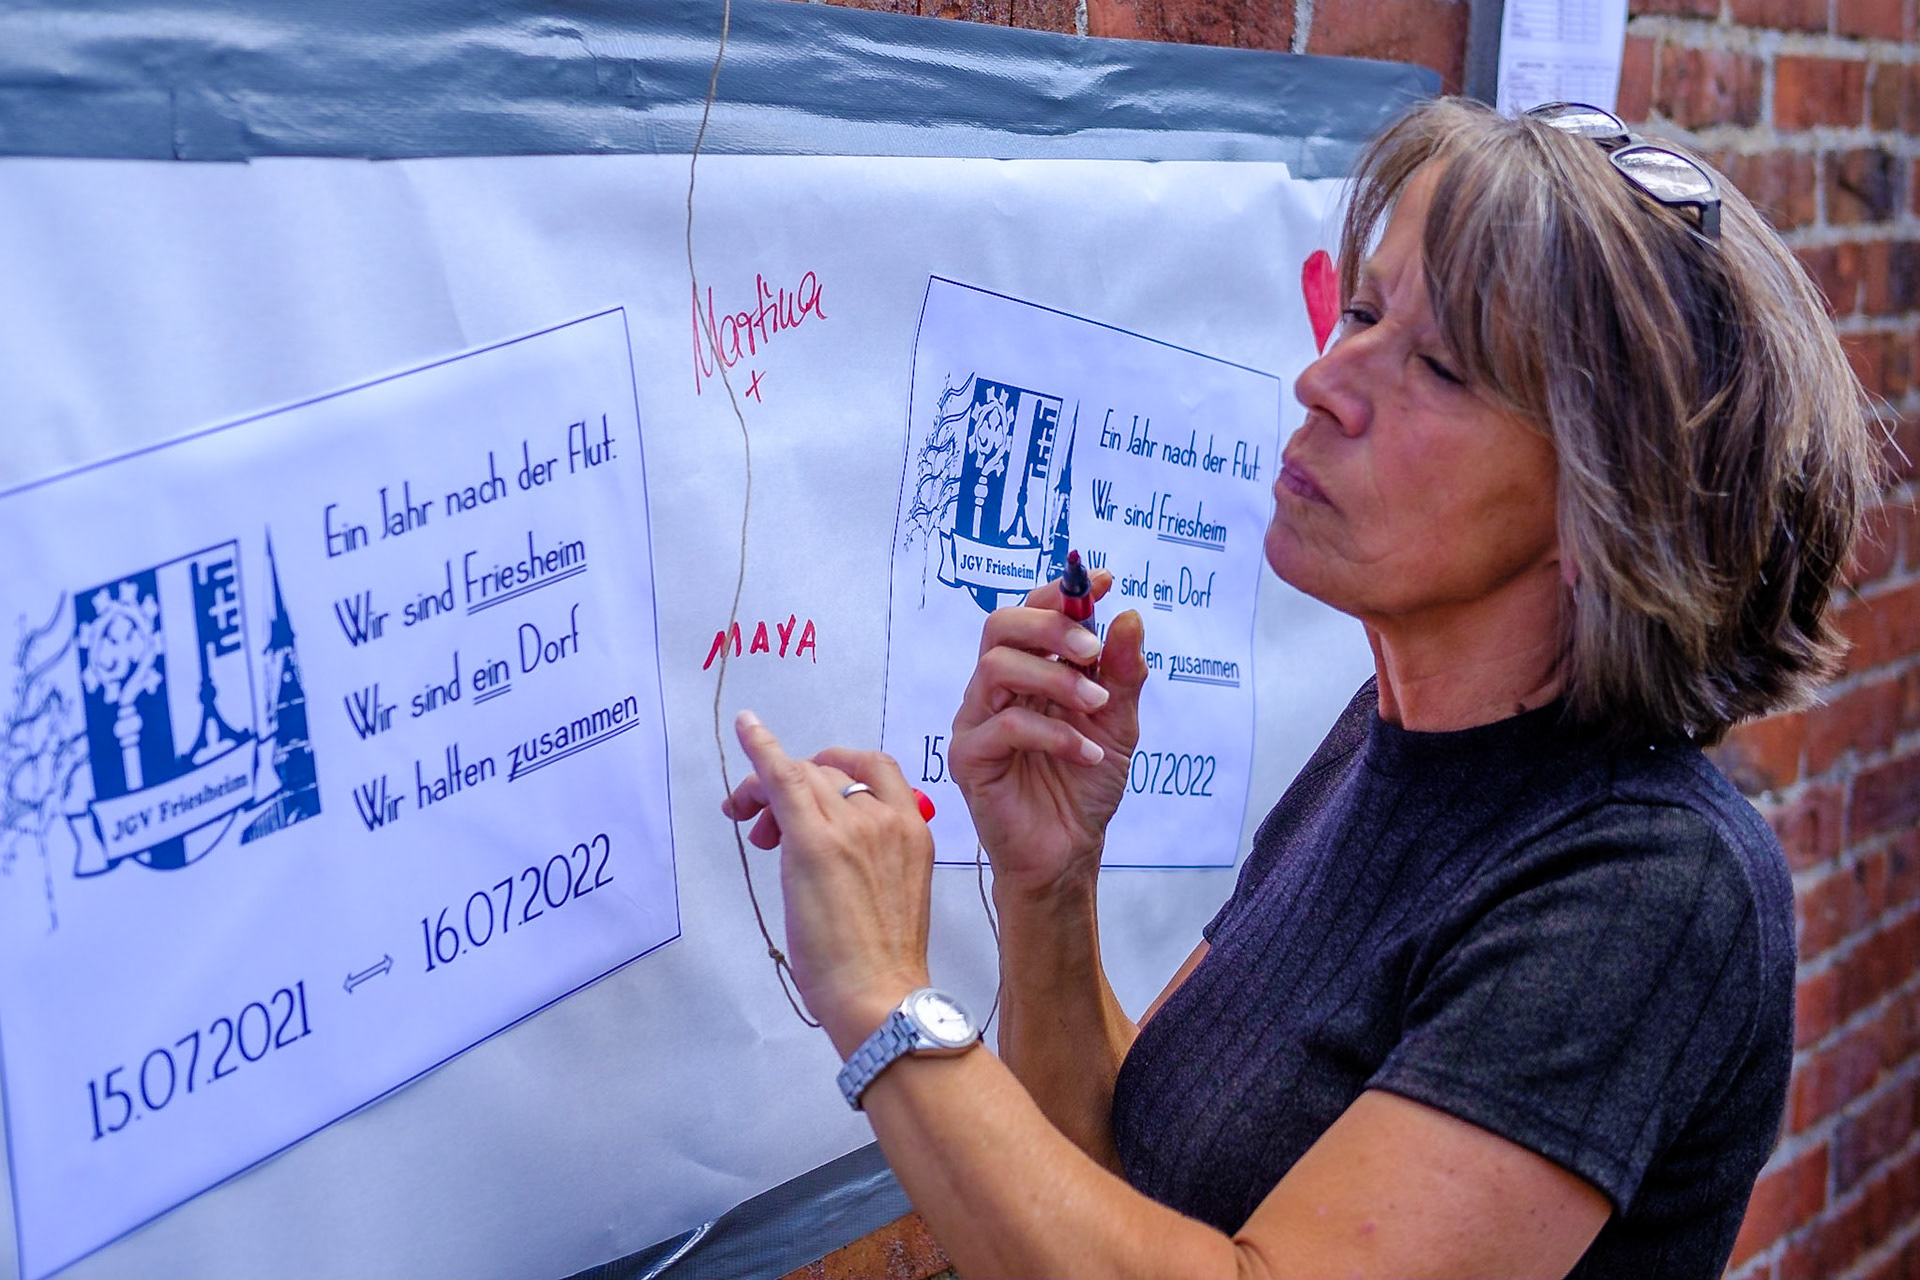 Ein Jahr nach der Flut:
Wir sind Friesheim
Wir sind ein Dorf
Wir halten zusammen
JGV Friesheim
15.07.2021 ⇔ 16.07.2022
Martina
+
MAYA
Ein Jahr nach der Flut:
Wir sind Friesheim
sind ein Dorf
zusammen
JGV Friesheim
15.
.07.2022